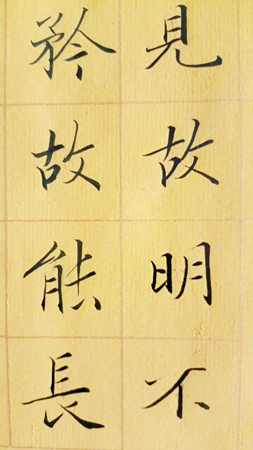 見故明不
矜故能長